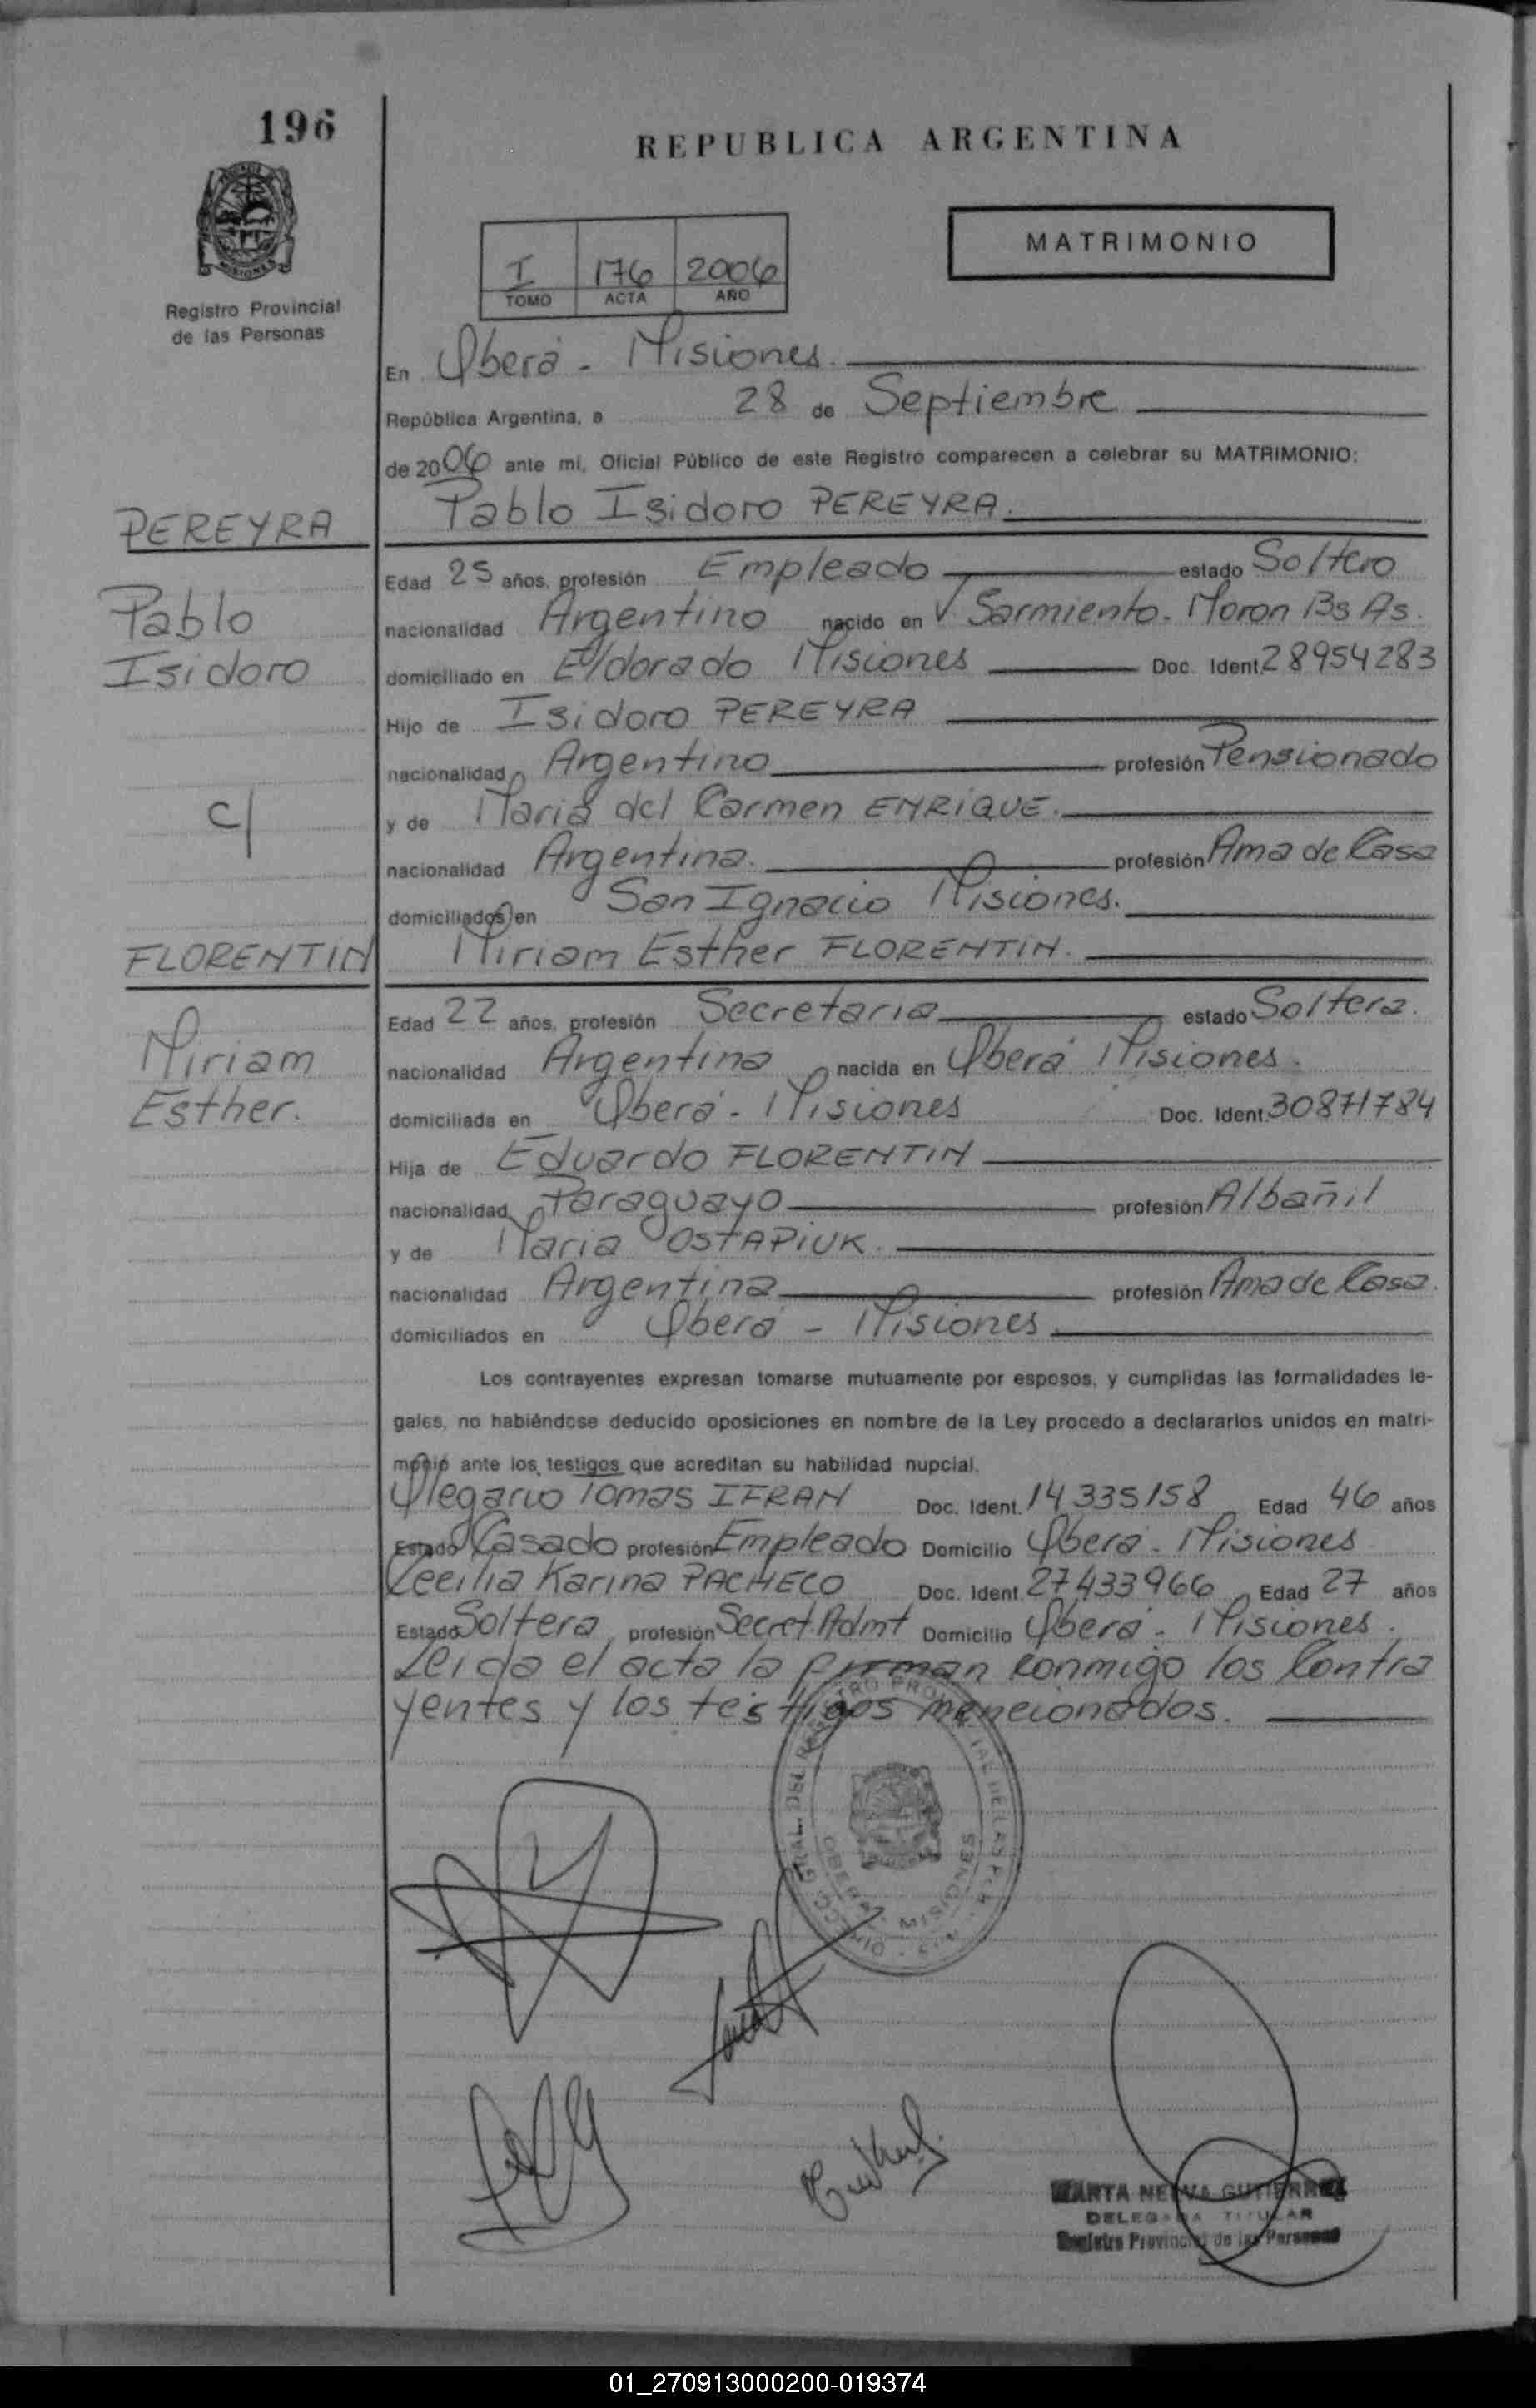 196
REPUBLICA ARGENTINA
MATRIMONIO
I 176 2006
TOMO ACTA AÑO
MISIONES
Registro Provincial
de las Personas
En Oberá - Misiones.
República Argentina, a 28 de Septiembre
de 2006 ante mí, Oficial Público de este Registro comparecen a celebrar su MATRIMONIO:
PEREYRA
Pablo
Isidoro
c/
FLORENTIN
Miriam
Esther.
Pablo Isidoro PEREYRA.
Edad 25 años, profesión Empleado estado Soltero
nacionalidad Argentino nacido en V. Sarmiento. Moron Bs As.
domiciliado en Eldorado Misiones Doc. Ident. 28954283
Hijo de Isidoro PEREYRA
nacionalidad Argentino profesión Pensionado
y de Maria del Carmen ENRIQUE.
nacionalidad Argentina. profesión Ama de Casa
domiciliados en San Ignacio Misiones.
Miriam Esther FLORENTIN.
Edad 22 años, profesión Secretaria estado Soltera.
nacionalidad Argentina nacida en Oberá Misiones.
domiciliada en Oberá - Misiones Doc. Ident. 30871784
Hija de Eduardo FLORENTIN
nacionalidad Paraguayo profesión Albañil
y de Maria OSTAPIUK.
nacionalidad Argentina profesión Ama de Casa.
domiciliados en Oberá - Misiones
Los contrayentes expresan tomarse mutuamente por esposos, y cumplidas las formalidades le-
gales, no habiéndose deducido oposiciones en nombre de la Ley procedo a declararlos unidos en matri-
monio ante los testigos que acreditan su habilidad nupcial.
Olegario Tomas IFRAN Doc. Ident. 14335158 Edad 46 años
Estado Casado profesión Empleado Domicilio Oberá - Misiones
Cecilia Karina PACHECO Doc. Ident. 27433966 Edad 27 años
Estado Soltera profesión Secret. Admt Domicilio Oberá - Misiones.
Leida el acta la firman conmigo los Contra
yentes y los testigos mencionados.
OBERA - MISIONES
MARTA NELVA GUTIERREZ
DELEGADA TITULAR
Registro Provincial de las Personas
01_270913000200-019374